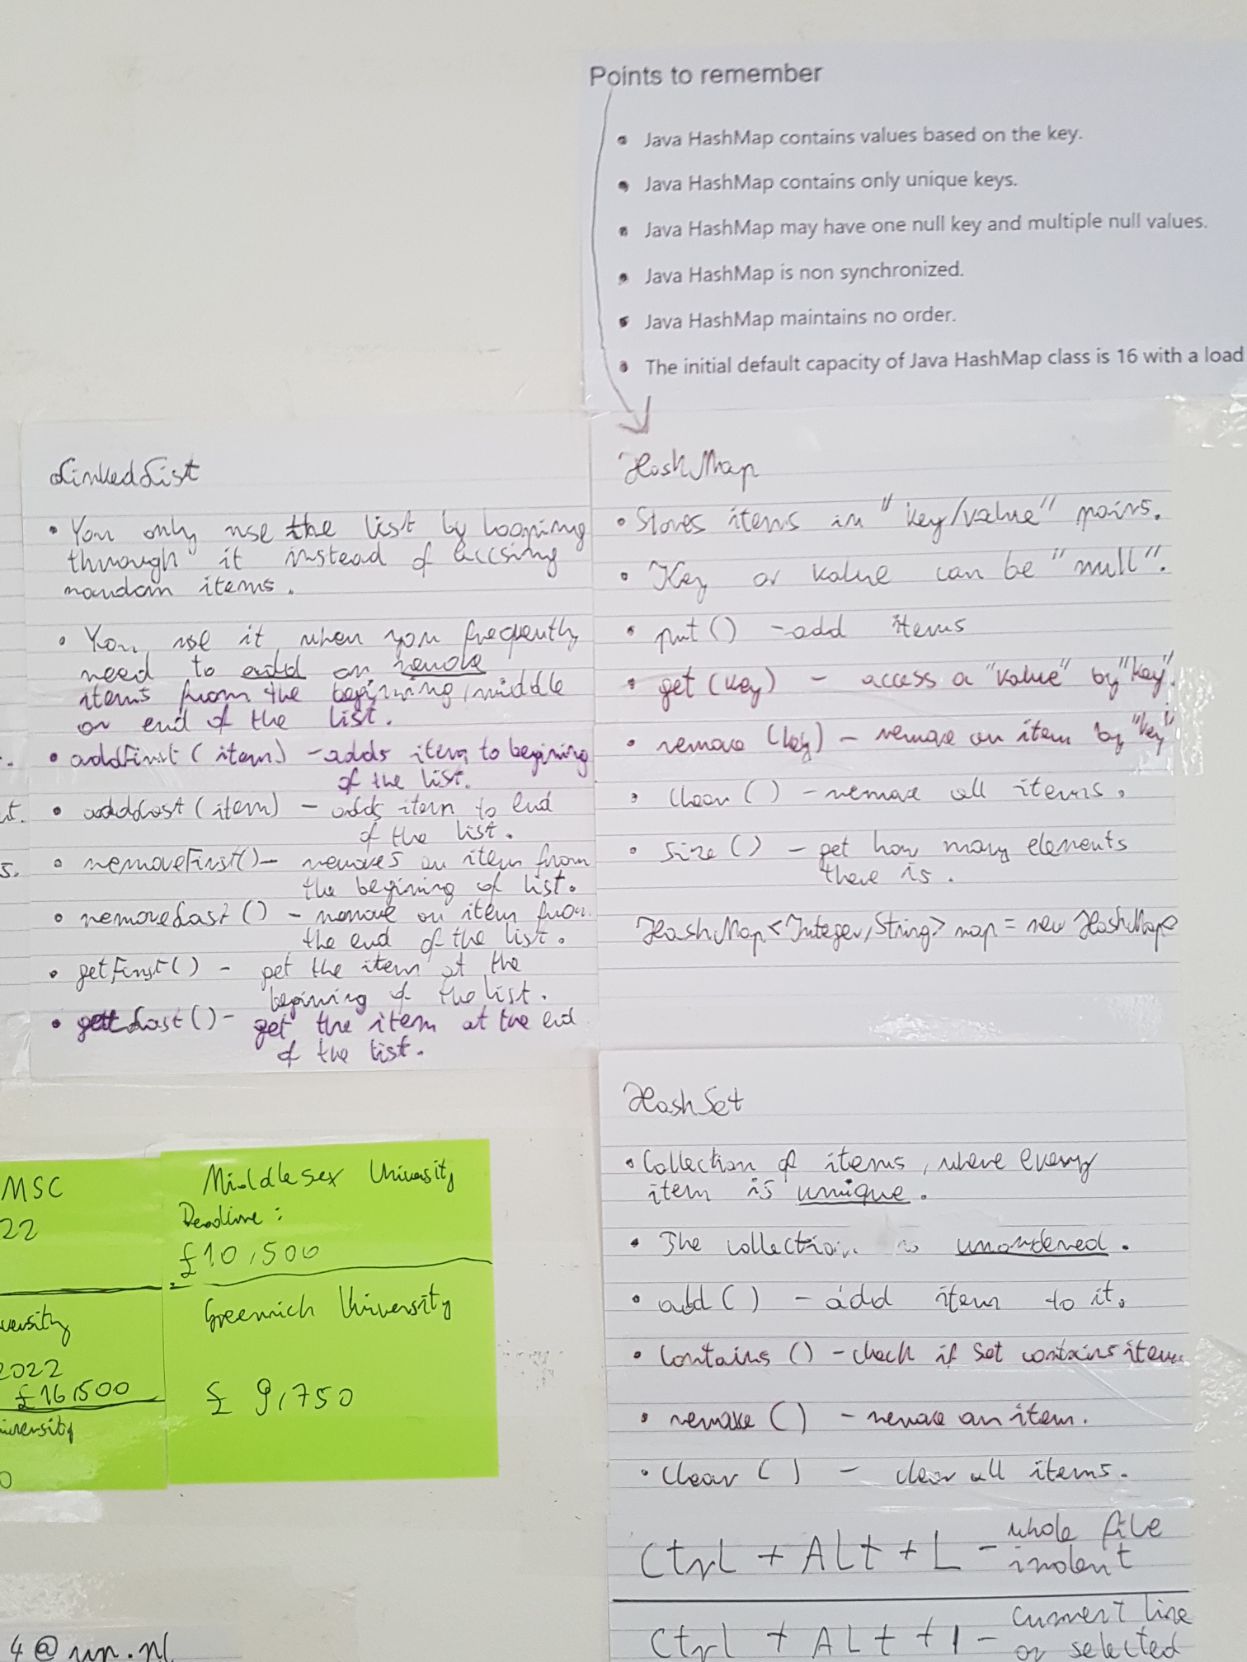 Points to remember
• Java HashMap contains values based on the key.
• Java HashMap contains only unique keys.
• Java HashMap may have one null key and multiple null values.
• Java HashMap is non synchronized.
• Java HashMap maintains no order.
• The initial default capacity of Java HashMap class is 16 with a load
LinkedList
• You only use the list by looping
through it instead of accsing
random items.
• You use it when you frequently
need to add or remove
items from the beginning, middle
or end of the list.
• addFirst (item) - adds item to begining
of the list.
• addLast (item) - adds item to end
of the list.
• removeFirst() - removes an item from
the begining of list.
• removeLast () - remove an item from
the end of the list.
• getFirst() - get the item at the
begining of the list.
• getLast () - get the item at the end
of the list.
HashMap
• Stores items in "key/value" pairs.
• Key or value can be "null".
• put () - add items
• get (key) - access a "value" by "key".
• remove (key) - remove an item by "key"
• clear () - remove all items.
• size () - get how many elements
there is.
HashMap<Integer, String> map = new HashMap<
HashSet
• Collection of items, where every
item is unique.
• The collection is unordered.
• add () - add item to it.
• contains () - check if set contains item
• remove () - remove an item.
• clear () - clear all items.
Ctrl + ALt + L - whole file
indent
Ctrl + ALt + I - current line
or selected
MSC
22
versity
2022
£16,500
iversity
0
Middlesex University
Deadline:
£10,500
Greenwich University
£ 9,750
5.
4@un.nl